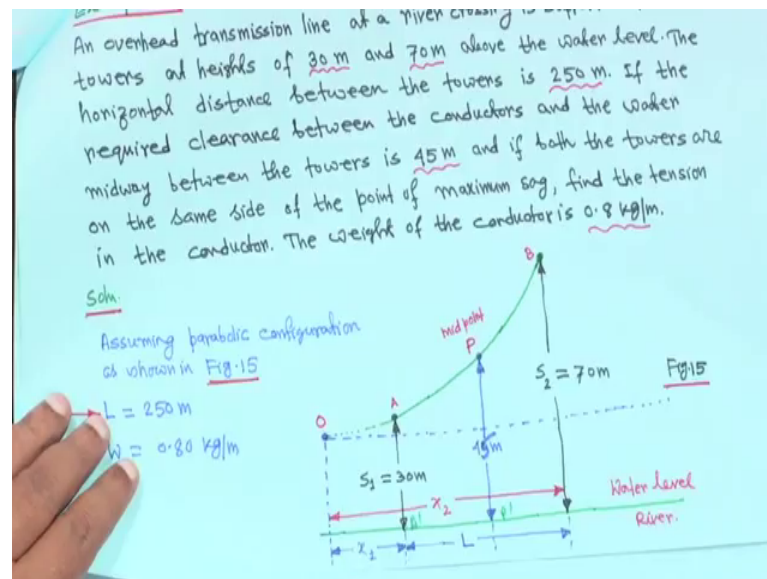 An overhead transmission line at a river crossing is
towers at heights of 30 m and 70m above the water level. The
horizontal distance between the towers is 250 m. If the
required clearance between the conductors and the water
midway between the towers is 45m and if both the towers are
on the same side of the point of maximum sag, find the tension
in the conductor. The weight of the conductor is 0.8 kg/m.
Soln.
Assuming parabolic configuration
as shown in Fig.15
L = 250 m
W = 0.80 kg/m
B
midpoint
P
S2 = 70m
Fig.15
A
O
45m
S1 = 30m
Water level
x2
A'
P'
River.
x1
L